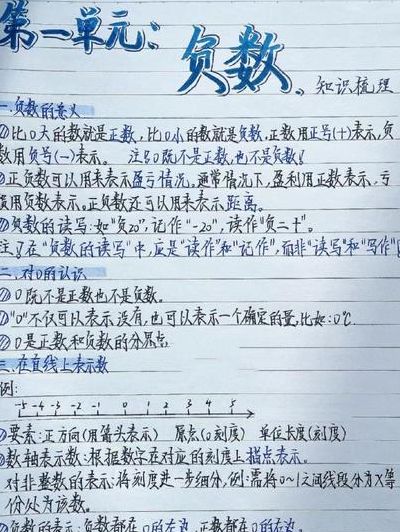 第一单元:
负数。知识梳理
一.负数的意义
①比0大的数就是正数,比0小的数就是负数,正数用正号(+)表示,负
数用负号(一)表示。 注:0既不是正数,也不是负数!
②正负数可以用来表示盈亏情况。通常情况下,盈利用正数表示,亏
用负数表示。正负数还可以用来表示距离。
③负数的读写:如"负20",记作"-20",读作"负二十"。
注:在"负数的读写"中,应是"读作"和"记作",而非"读写"和"写作"!
二.对0的认识
①0既不是正数也不是负数。
②"0"不仅可以表示没有,也可以表示一个确定的量,比如:0℃
③0是正数和负数的分界点
三.在直线上表示数
例:
-5 -4 -3 -2 -1 0 1 2 3 4 5
①要素:正方向(用箭头表示) 原点(0刻度) 单位长度(刻度)
②数轴表示数:根据数字在对应的刻度上描点表示。
对非整数的表示:将刻度进一步细分,例:需将0~1之间线段分为X等
份处为该数。
③负数的表示:负数都在0的左边,正数都在0的右边。